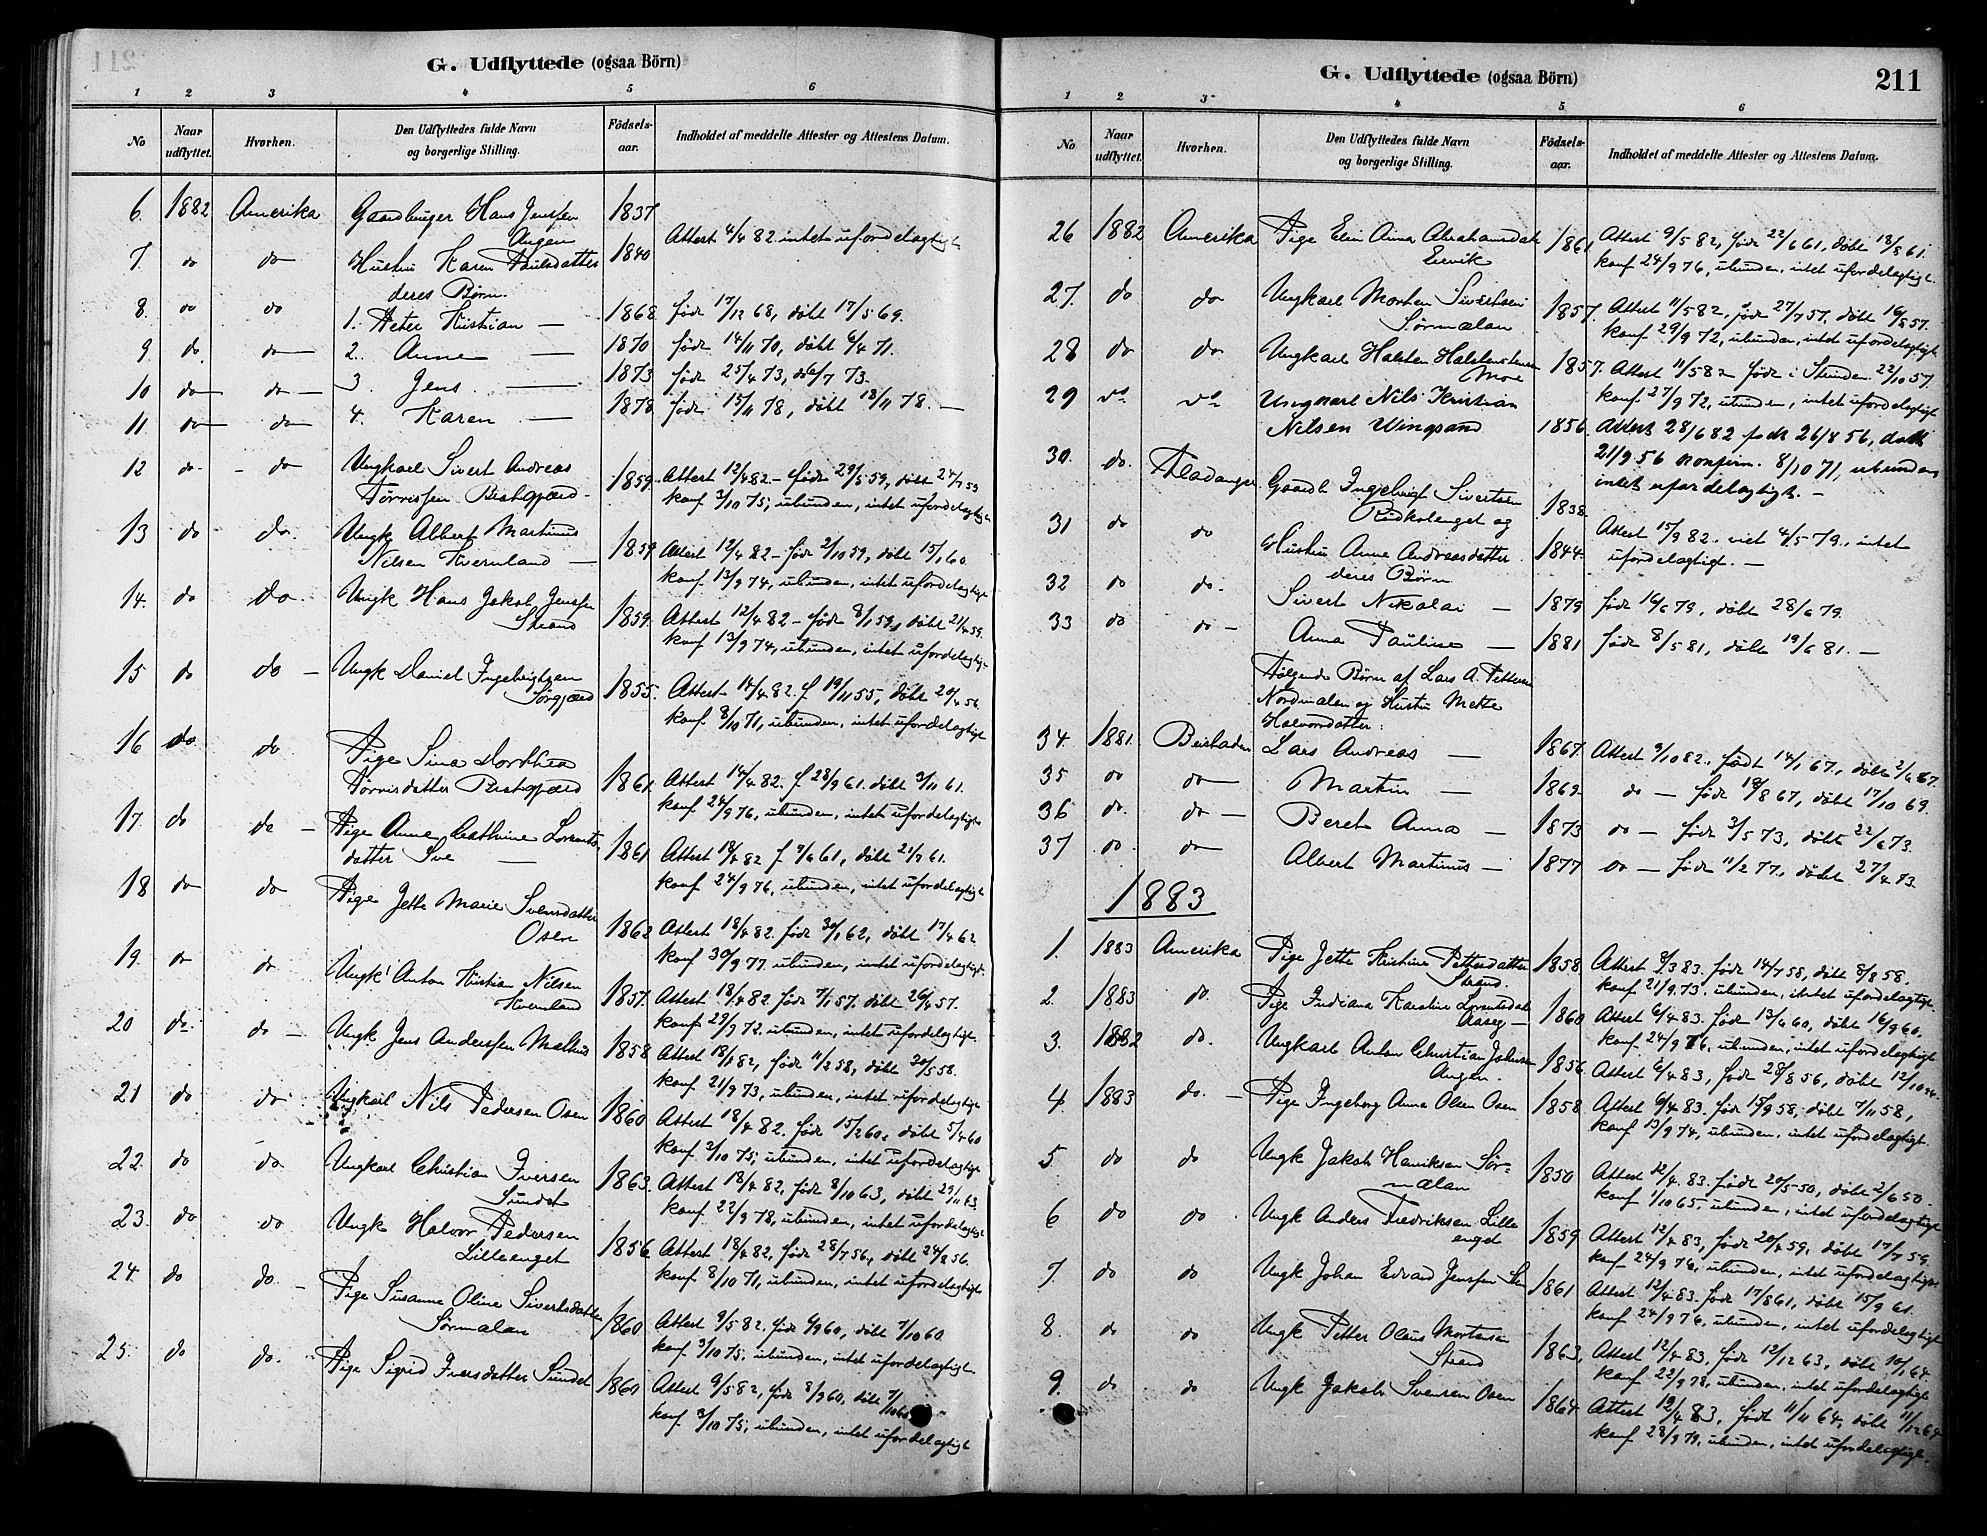 G. Udflyttede (ogsaa Börn)
1 2 3 4 5 6
No
Naar udflyttet.
Hvorhen.
Den Udflyttedes fulde Navn
og borgerlige Stilling.
Födsels-
aar.
Indholdet af meddelte Attester og Attestens Datum.
6. 1882 Amerika Gaardbruger Hans Jenssen 1837
Angen Attest 4/4 82 intet ufordelagtigt
7. do do Hustru Karen Paulsdatter 1840
deres Børn.
8. do do 1. Peter Kristian — 1868 født 17/12 68, døbt 17/5 69.
9 do. do 2. Anne — 1870 født 14/11 70, døbt 6/4 71.
10 do do 3 Jens — 1873 født 25/4 73, 73.
11. do do 4. Karen — 1878 født 15/11 78, døbt 18/11 78. —
12 do. do Ungkarl Sivert Andreas
Tørrissen Bratgjærd 1859 Attest 12/4 82 – født 29/5 59, døbt 24/7 59
konf. 3/10 75, ubunden, intet ufordelagtigt
13 do do. Ungk Albert Martinus
Nilsen Hvernland — 1859 Attest 12/4 82 – født 2/10 59, døbt 15/1 60.
konf. 13/9 74, ubunden, intet ufordelagtigt
14. do do. Ungk Hans Jakob Jenssen
Strand 1859. Attest 12/4 82 – født 8/1 59, døbt 21/4 59.
konf. 13/9 74, ubunden, intet ufordelagtigt
15 do do — Ungk Daniel Ingebrigtsen
Sørgjærd 1855. Attest 14/4 82. f 19/11 55, døbt 20/4 56.
konf. 8/10 71, ubunden, intet ufordelagtigt
16 do do Pige Sina Dorthea
Tørrisdatter Bratgjærd 1861. Attest 14/4 82. f 28/9 61. døbt 3/11 61.
konf. 24/9 76, ubunden, intet ufordelagtigt
17. do do — Pige Anne Cathrine Lorents-
datter Sve — 1861 Attest 18/4 82 f 9/6 61, døbt 21/7 61.
konf. 24/9 76, ubunden, intet ufordelagtigt
18 do do Pige Jette Marie Svensdatter
Osen 1862 Attest 18/4 82. født 30/1 62, døbt 17/4 62
konf 30/9 77 ubunden, intet ufordelagtigt.
19. do do. Ungk Anton Kristian Nilsen
Hvernland 1857. Attest 18/4 82. født 7/1 57. døbt 26/4 57.
konf 29/9 72. ubunden, intet ufordelagtigt.
20 do. do — Ungk Jens Anderssen 1858 Attest 18/4 82, født 11/2 58, døbt 30/5 58.
konf. 21/9 73, ubunden, intet ufordelagtigt
21 do do Ungkarl Nils Pedersen Osen 1860 Attest 18/4 82. født 15/2 60, døbt 5/4 60
konf. 3/10 75, ubunden, intet ufordelagtigt
22. do do. Ungkarl Christian Iversen
Sundet 1863. Attest 18/4 82, født 8/10 63, døbt 29/11 63.
konf. 22/9 78, ubunden, intet ufordelagtigt
23. do do Ungk Halvor Pedersen
Lilleenget 1856 Attest 18/4 82, født 28/7 56, døbt 24/8 56.
konf. 8/10 71, ubunden, intet ufordelagtigt
24. do do. — Pige Susanne Oline Sivertsdatter
Sørmalan 1860 Attest 9/5 82. født 9/9 60, døbt 7/10 60
konf. 3/10 75, ubunden, intet ufordelagtigt.
25. do do. Pige Sigrid Iversdatter Sundet 1860 Attest 9/5 82, født 8/9 60, døbt 7/10 60
konf. 3/10 75, ubunden, intet ufordelagtigt
G. Udflyttede (ogsaa Börn)
211
1 2 3 4 5 6
No
Naar udflyttet.
Hvorhen.
Den Udflyttedes fulde Navn
og borgerlige Stilling.
Födsels-
aar.
Indholdet af meddelte Attester og Attestens Datum.
26 1882 Amerika Pige Elen Anna Abrahamsdatr
Eervik 1861 Attest 9/5 82, født 22/6 61, døbt 18/8 61.
konf. 24/9 76, ubunden, intet ufordelagtigt.
27. do do Ungkarl Morten Sivertsen
Sørmalan 1857. Attest 11/5 82, født 27/7 57, døbt 16/8 57.
konf. 29/9 72, ubunden, intet ufordelagtigt
28 do do. Ungkarl Halsten Halstensen
Moe 1857. Attest 11/5 82 født i Strinden 22/10 57.
konf. 27/9 72, ubunden, intet ufordelagtigt
29 do do Ungkarl Nils Kristian
Nilsen Wingsand 1856. Attest 28/6 82 født 26/8 56, døbt
21/9 56 konfirm. 8/10 71, ubunden
intet ufordelagtigt. —
30. do. Fladanger Gaardb Ingebrigt Sivertsen
og 1838.
Attest 15/9 82. viet 4/5 79, intet
ufordelagtigt. —
31 do do Hustru Anne Andreasdatter 1844.
deres Børn
32 do do. Sivert Nikolai — 1879 født 16/6 79, døbt 28/6 79.
33 do do — Anna Pauline — 1881 født 8/5 81, døbt 19/6 81. —
Følgende Børn af Lars A. Pettersen
Nordmalen og Hustru Mette
Halvorsdatter:
34. 1881. Beitstaden Lars Andreas — 1867. Attest 9/10 82, født 14/1 67, døbt 2/6 67.
35 do do — Martin — 1869. do — født 18/8 67, døbt 17/10 69.
36 do. do — Beret Anna — 1873 do — født 3/5 73, døbt 22/6 73.
37 do. do Albert Martinus — 1877 do — født 11/2 77, døbt 27/4 73.
1883
1. 1883 Amerika Pige Jette Kristine Pettersdatter
Strand. 1858 Attest 8/3 83. født 14/7 58, døbt 8/8 58.
konf 21/9 73. ubunden, intet ufordelagtigt.
2. 1883 do. Pige Indiana Karoline Lorentsdatr
Aaseg — 1860 Attest 6/4 83. født 13/6 60, døbt 16/9 60.
konf. 24/9 76, ubunden, intet ufordelagtigt
3. 1882 do. Ungkarl Anton Christian Johnsen
Angen. 1856 Attest 6/4 83, født 28/8 56, døbt 12/10
4. 1883 do. — Pige Ingeborg Anna Olsen Osen 1858 Attest 6/4 83. født 15/9 58, døbt 7/11 58,
konf 13/9 74, ubunden, intet ufordelagtigt.
5 do do Ungk Jakob Henriksen Sør-
malan 1850 Attest 12/4 83. født 20/5 50, døbt 2/6 50.
konf 1/10 65, ubunden, intet ufordelagtigt
6 do do. Ungk Anders Fredriksen Lille
enget 1859 Attest 12/4 83, født 20/4 59, døbt 17/7 59.
konf. 24/9 76, ubunden, intet ufordelagtigt.
7. do do Ungk Johan Edvard Jenssen 1861 Attest 12/4 83. født 17/8 61, døbt 15/9 61.
konf. 24/9 76, ubunden, intet ufordelagtigt
8. do do Ungk Petter Olaus Mortensen
Strand 1863, Attest 12/4 83. født 12/12 63, døbt 10/4 64.
konf. 22/9 78, ubunden, intet ufordelagtigt
9. do do Ungk Jakob Svensen Osen 1864. Attest 19/4 83, født 11/11 64, døbt 11/12 64
konf. 28/9 79, ubunden, intet ufordelagtigt.